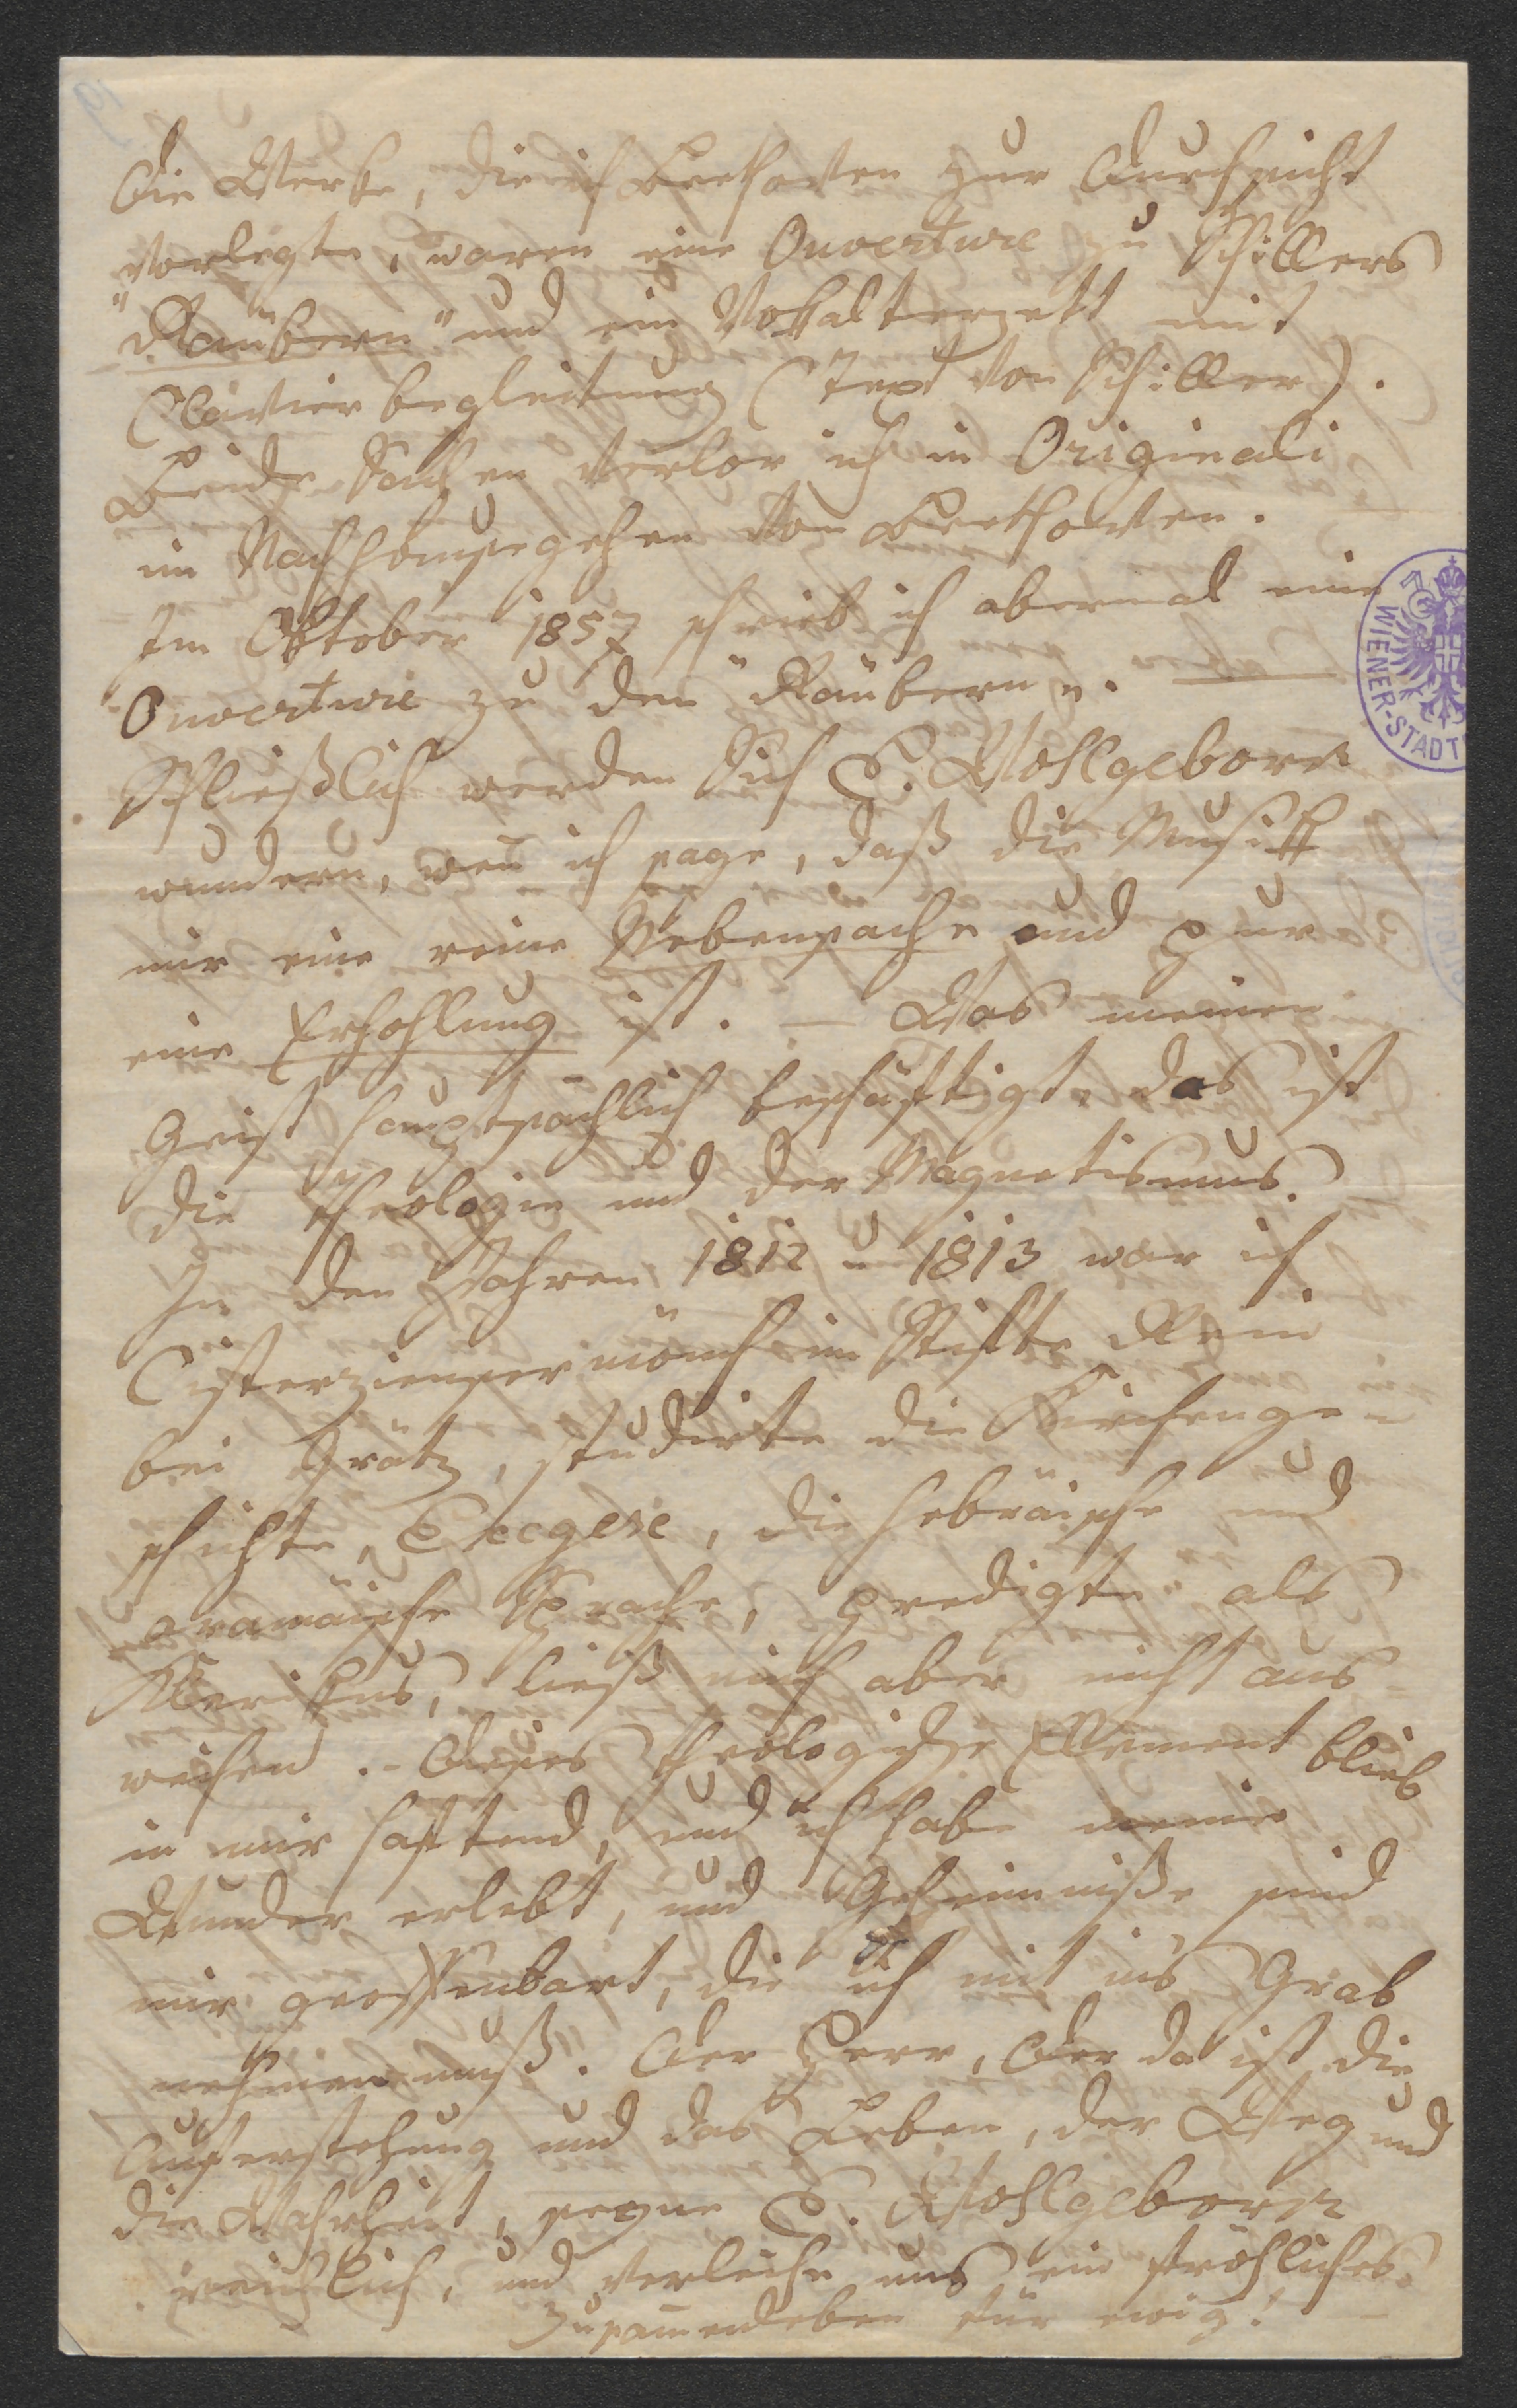 Die Werke, die ich Beethoven zur Durchsicht
vorlegte, waren eine Ouverture zu Schillers
"Räubern" und ein Vokalterzett mit
Clavierbegleitung (Text von Schiller).
Beide Sachen verlor ich in Originali
im Nachhausegehen von Beethoven.
Im Oktober 1857 schrieb ich abermal eine
Ouverture zu den "Räubern". —
Schließlich werden Sich E. Wohlgeborn
wundern, wen̄ ich sage, daß die Musik
mir eine reine Nebensache und pur
eine Erhohlung ist. — Was meinen
Geist hauptsächlich beschäftigt, das ist
die Theologie und der Magnetismus.
In den Jahren 1812 u 1813 war ich
Cisterziensermönch im Stifte Rein
bei Grätz, studirte die Kirchenge-
schichte, Exegese, die hebräische und
aramäische Sprache, predigte als
Klerikus, ließ mich aber nicht aus-
weihen. - Dieses theologische Element blieb
in mir haftend, und ich habe meine
Wunder erlebt, und Geheimniße sind
mir geoffenbart, die ich mit ins Grab
nehmen muß. Der Herr, Der da ist die
Auferstehung und das Leben, der Weg und
die Wahrheit, segne E. Wohlgeborn
reichlich, und verleihe uns ein fröhliches
Zusam̄enleben für ewig! —
WIENER-STADT